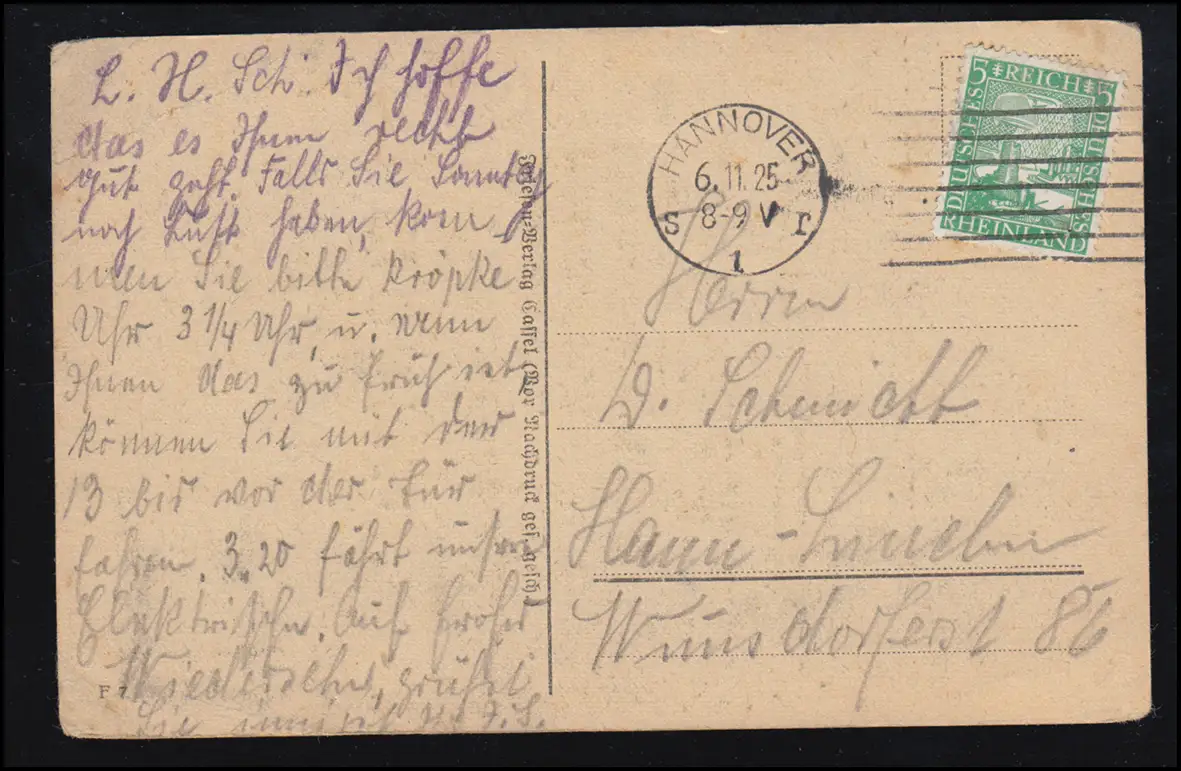 L. H. Sch. Ich hoffe
das es Ihnen recht
gut geht. Falls Sie, Sonntag
noch Lust haben, kom
men Sie bitte Kröpke
Uhr 3 1/4 Uhr, u. wenn
Ihnen das zu früh ist,
können Sie mit der
13 bis vor der Tür
fahren. 3.20 fährt unsre
Elektrische. Auf frohes
Wiedersehn, grüßt
Sie
F 7
Verlag Cassel (Vor Nachdruck ges. gesch.)
HANNOVER
6.11.25
8-9 V
S r
1
5 REICH 5
DEUTSCHES
DEUTSCHES
RHEINLAND
Herrn
D. Schmidt
Hann-Linden
Wunsdorferst 86